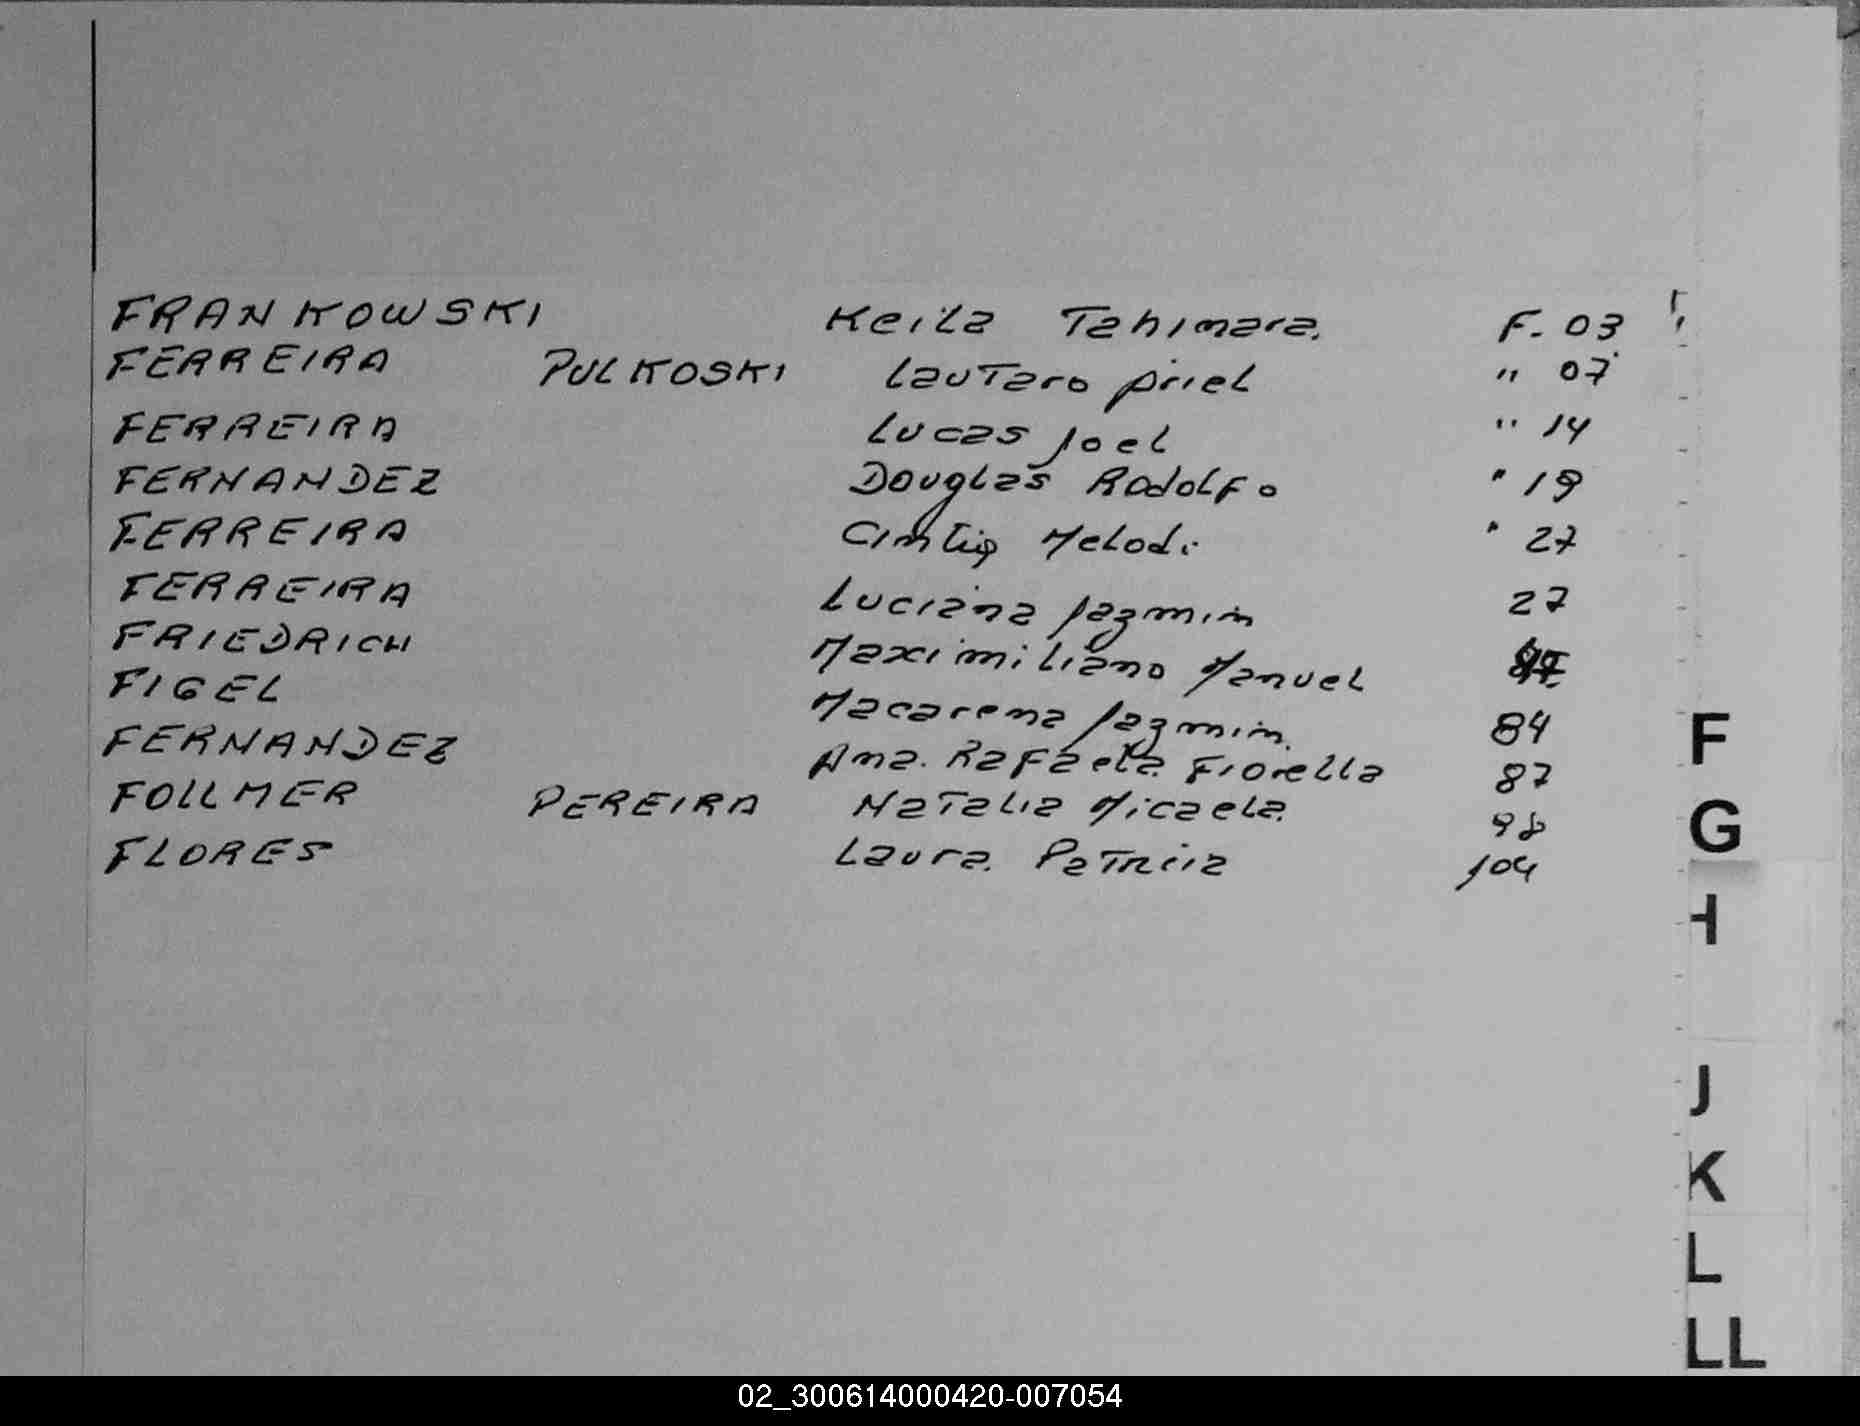 FRANKOWSKI Keila Tahimara. F. 03
FERREIRA PULKOSKI Lautaro Ariel " 07
FERREIRA Lucas Joel " 14
FERNANDEZ Douglas Rodolfo " 19
FERREIRA Melodi " 27
FERREIRA Luciana Jazmin 27
FRIEDRICH Maximiliano Manuel
FIGEL Macarena Jazmin. 84
FERNANDEZ Ana. Rafaela Fiorella 87
FOLLMER PEREIRA Natalia Micaela. 98
FLORES Laura. 104
F
G
H
J
K
L
LL
02_300614000420-007054